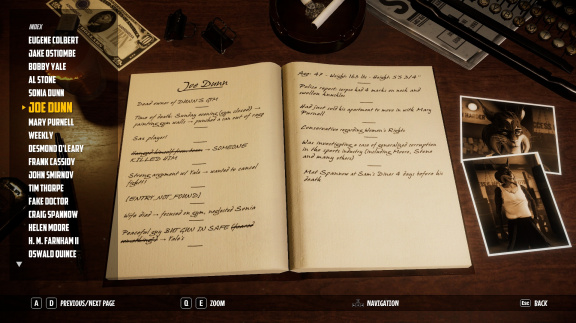 INDEX
EUGENE COLBERT
JAKE OSTIOMBE
BOBBY YALE
AL STONE
SONIA DUNN
JOE DUNN
MARY PURNELL
WEEKLY
DESMOND O'LEARY
FRANK CASSIDY
JOHN SMIRNOV
TIM THORPE
FAKE DOCTOR
CRAIG SPANNOW
HELEN MOORE
H. M. FARNHAM II
OSWALD QUINCE
Joe Dunn
Dead owner of DUNN'S GYM
Time of death: Sunday evening (gym closed) →
painting gym walls → provided a can of eggs
Gas player?
hanged himself from → SOMEONE
KILLED HIM
Strong argument w/ Yale → wanted to cancel
fight?
[ENTRY_NOT_FOUND]
Wife died → focused on gym, neglected Sonia
Peaceful guy BUT GUN IN SAFE
→ Yale's
Age: 47 - Weight: 163 lb - Height: 5'5 3/4"
Police report: corpse had 2 marks on neck and
swollen knuckles
Had just sold his apartment to move in with Mary
Purnell
Conservative regarding Women's Rights
Was investigating a case of generalized corruption
in the sports industry (including Moore, Stone
and many others)
Met Spannow at Sam's Diner 4 days before his
death
A D PREVIOUS/NEXT PAGE
Q E ZOOM
NAVIGATION
Esc BACK